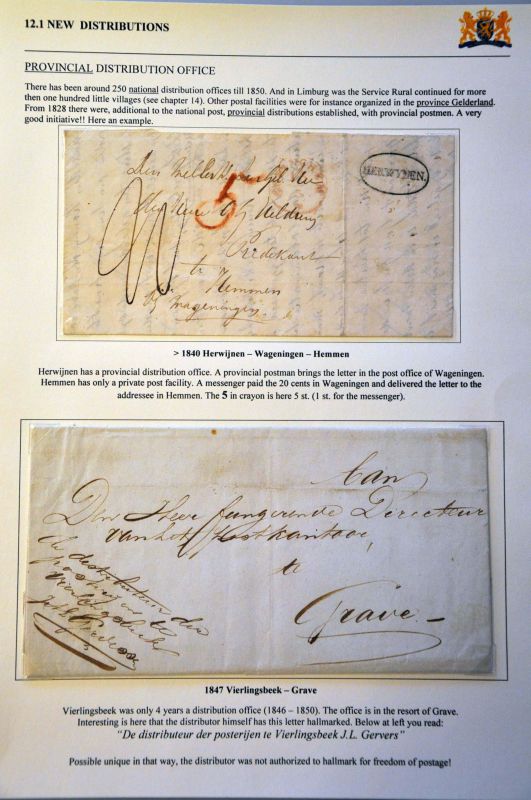 12.1 NEW DISTRIBUTIONS
PROVINCIAL DISTRIBUTION OFFICE
There has been around 250 national distribution offices till 1850. And in Limburg was the Service Rural continued for more
then one hundred little villages (see chapter 14). Other postal facilities were for instance organized in the province Gelderland.
From 1828 there were, additional to the national post, provincial distributions established, with provincial postmen. A very
good initiative!! Here an example.
HERWYNEN.
5
Predikant
te Hemmen
Wageningen
> 1840 Herwijnen – Wageningen – Hemmen
Herwijnen has a provincial distribution office. A provincial postman brings the letter in the post office of Wageningen.
Hemmen has only a private post facility. A messenger paid the 20 cents in Wageningen and delivered the letter to the
addressee in Hemmen. The 5 in crayon is here 5 st. (1 st. for the messenger).
Aan
Den Heer fungerende Directeur
van het Postkantoor
te
Grave
De distributeur der
posterijen te
Vierlingsbeek
1847 Vierlingsbeek – Grave
Vierlingsbeek was only 4 years a distribution office (1846 – 1850). The office is in the resort of Grave.
Interesting is here that the distributor himself has this letter hallmarked. Below at left you read:
"De distributeur der posterijen te Vierlingsbeek J.L. Gervers"
Possible unique in that way, the distributor was not authorized to hallmark for freedom of postage!